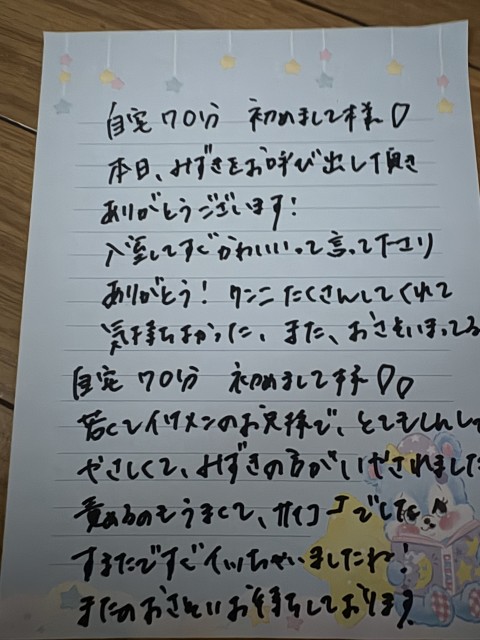 自宅 70分 初めまして様♡
本日、みずきをお呼び出し頂き
ありがとうございます！
入室してすぐかわいいって言って下さり
ありがとう！クンニたくさんしてくれて
気持ちよかった、また、おさそいまってる
自宅 70分 初めまして様♡♡
若くてイケメンのお兄様で、とてもしんし
やさしくて、みずきの方がいやされました
責めるのもうまくて、サイコーでした
すぐイッちゃいましたね！
またのおさそいお待ちしております？